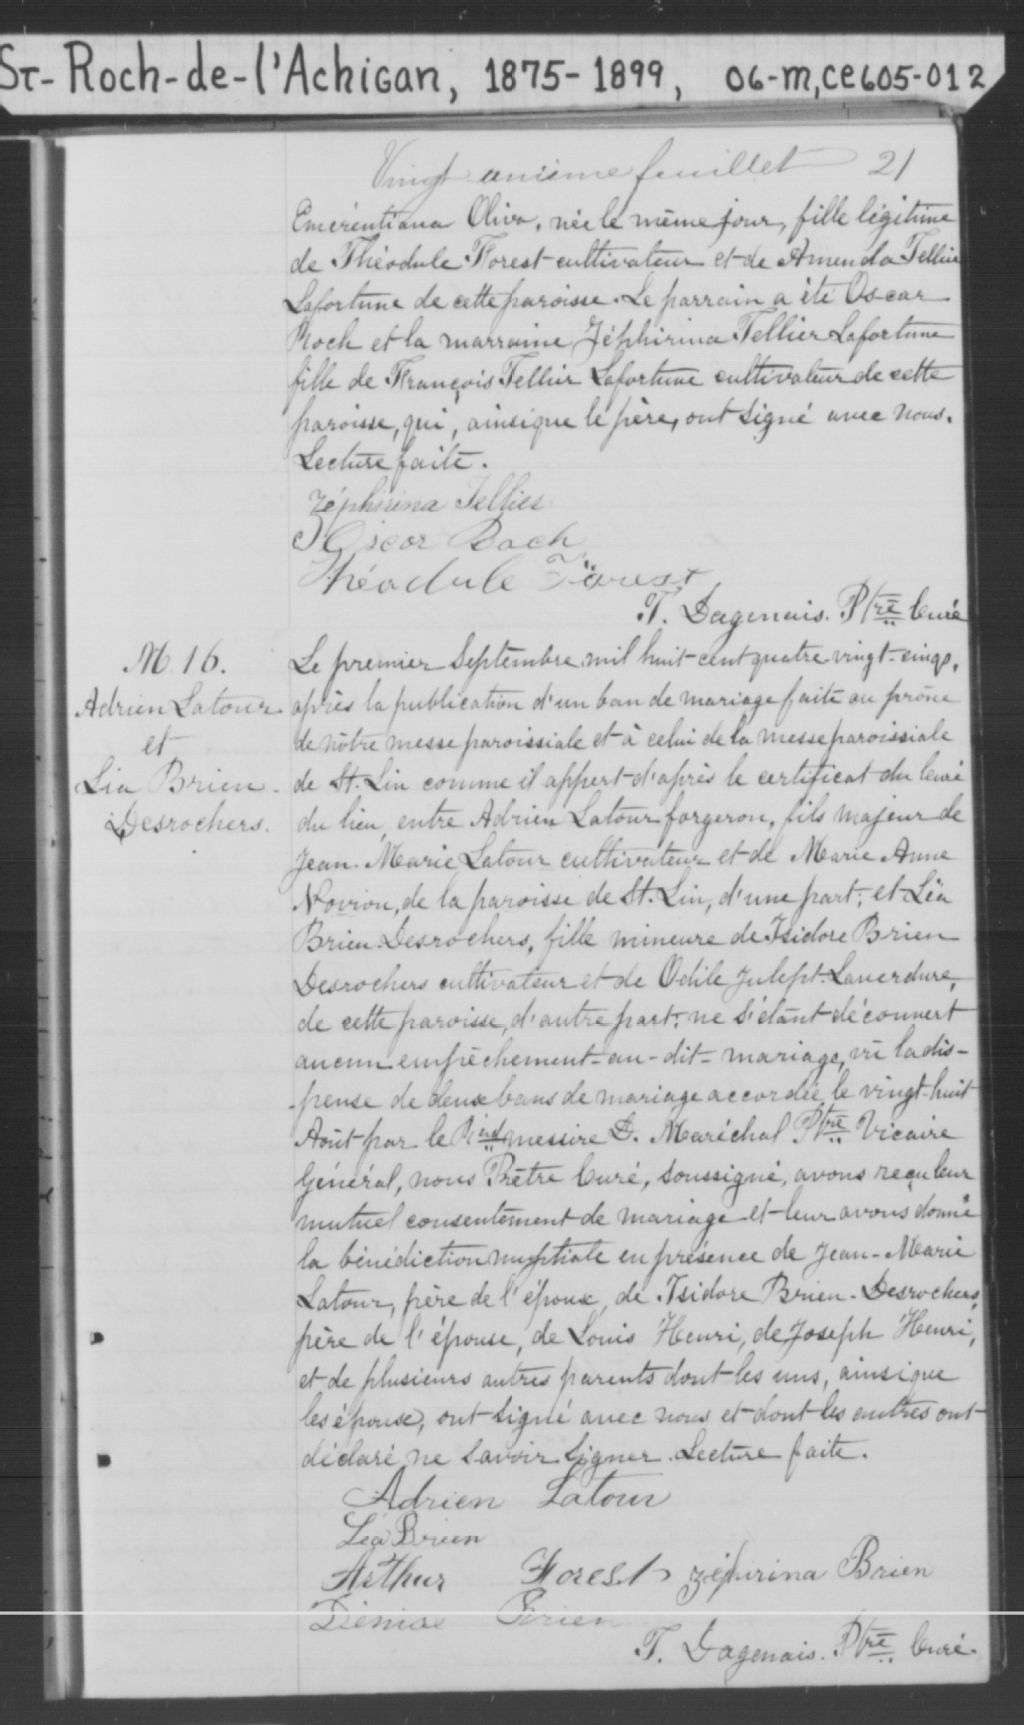 St-Roch-de-l'Achigan, 1875-1899, 06-M,CE605-012
Vingt unième feuillet 21
Emérentiana Oliva, née le même jour, fille légitime
de Théodule Forest cultivateur et de Amenda Tellier
Lafortune de cette paroisse. Le parrain a été Oscar
Roch et la marraine Zéphirina Tellier Lafortune
fille de François Tellier Lafortune cultivateur de cette
paroisse, qui, ainsi que le père, ont signé avec nous.
Lecture faite.
Zéphirina Tellier
Oscar Roch
Théodule Forest
T. Dagenais. Ptre Curé
M. 16.
Adrien Latour
et
Lia Brien
Desrochers.
Le premier Septembre mil huit-cent quatre vingt-cinq,
après la publication d'un ban de mariage faite au prône
de nôtre messe paroissiale et à celui de la messe paroissiale
de St. Lin comme il appert d'après le certificat du Curé
du lieu, entre Adrien Latour forgeron, fils majeur de
Jean-Marie Latour cultivateur et de Marie Anne
de la paroisse de St. Lin, d'une part; et Léa
Brien-Desrochers, fille mineure de Isidore Brien
Desrochers cultivateur et de Odile Laverdure,
de cette paroisse, d'autre part; ne s'étant découvert
aucun empêchement au-dit-mariage, vu la dis-
-pense de deux bans de mariage accordée le vingt-huit
Août par le Rèvd messire L. Maréchal Ptre Vicaire
Général, nous Prêtre Curé, soussigné, avons reçu leur
mutuel consentement de mariage et leur avons donné
la bénédiction nuptiale en présence de Jean-Marie
Latour, père de l'époux, de Isidore Brien-Desrochers,
père de l'épouse, de Louis Henri, de Joseph Henri,
et de plusieurs autres parents dont les uns, ainsi que
les épouse, ont signé avec nous et dont les autres ont
déclaré ne savoir signer. Lecture faite.
Adrien Latour
Léa Brien
Arthur Forest Zéphirina Brien
Brien
T. Dagenais. Ptre Curé.